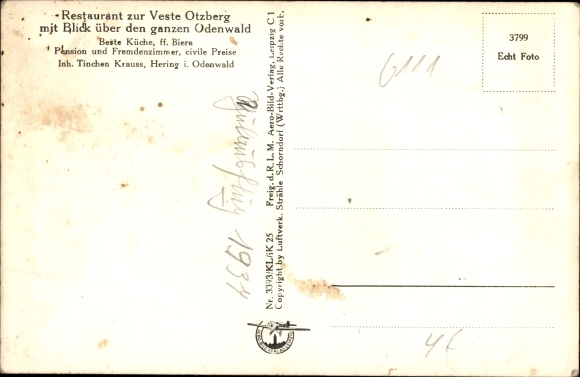 Restaurant zur Veste Otzberg
mit Blick über den ganzen Odenwald
Beste Küche, ff. Biere
Pension und Fremdenzimmer, civile Preise
Inh. Tinchen Krauss, Hering i. Odenwald
1934
Nr. 3393/KL/iK 25 Freig. d. R. L. M. Aero-Bild-Verlag, Leipzig C 1
Copyright by Luftverk. Strähle Schorndorf (Wrttbg.) Alle Rechte vorb.
6111
3799
Echt Foto